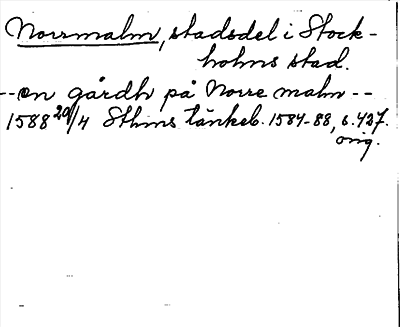 Norrmalm, stadsdel i Stock-
holms stad.
--en gårdh på Norre malm--
1588 20/4 Sthms tänkeb. 1584-88, s. 427.
orig.